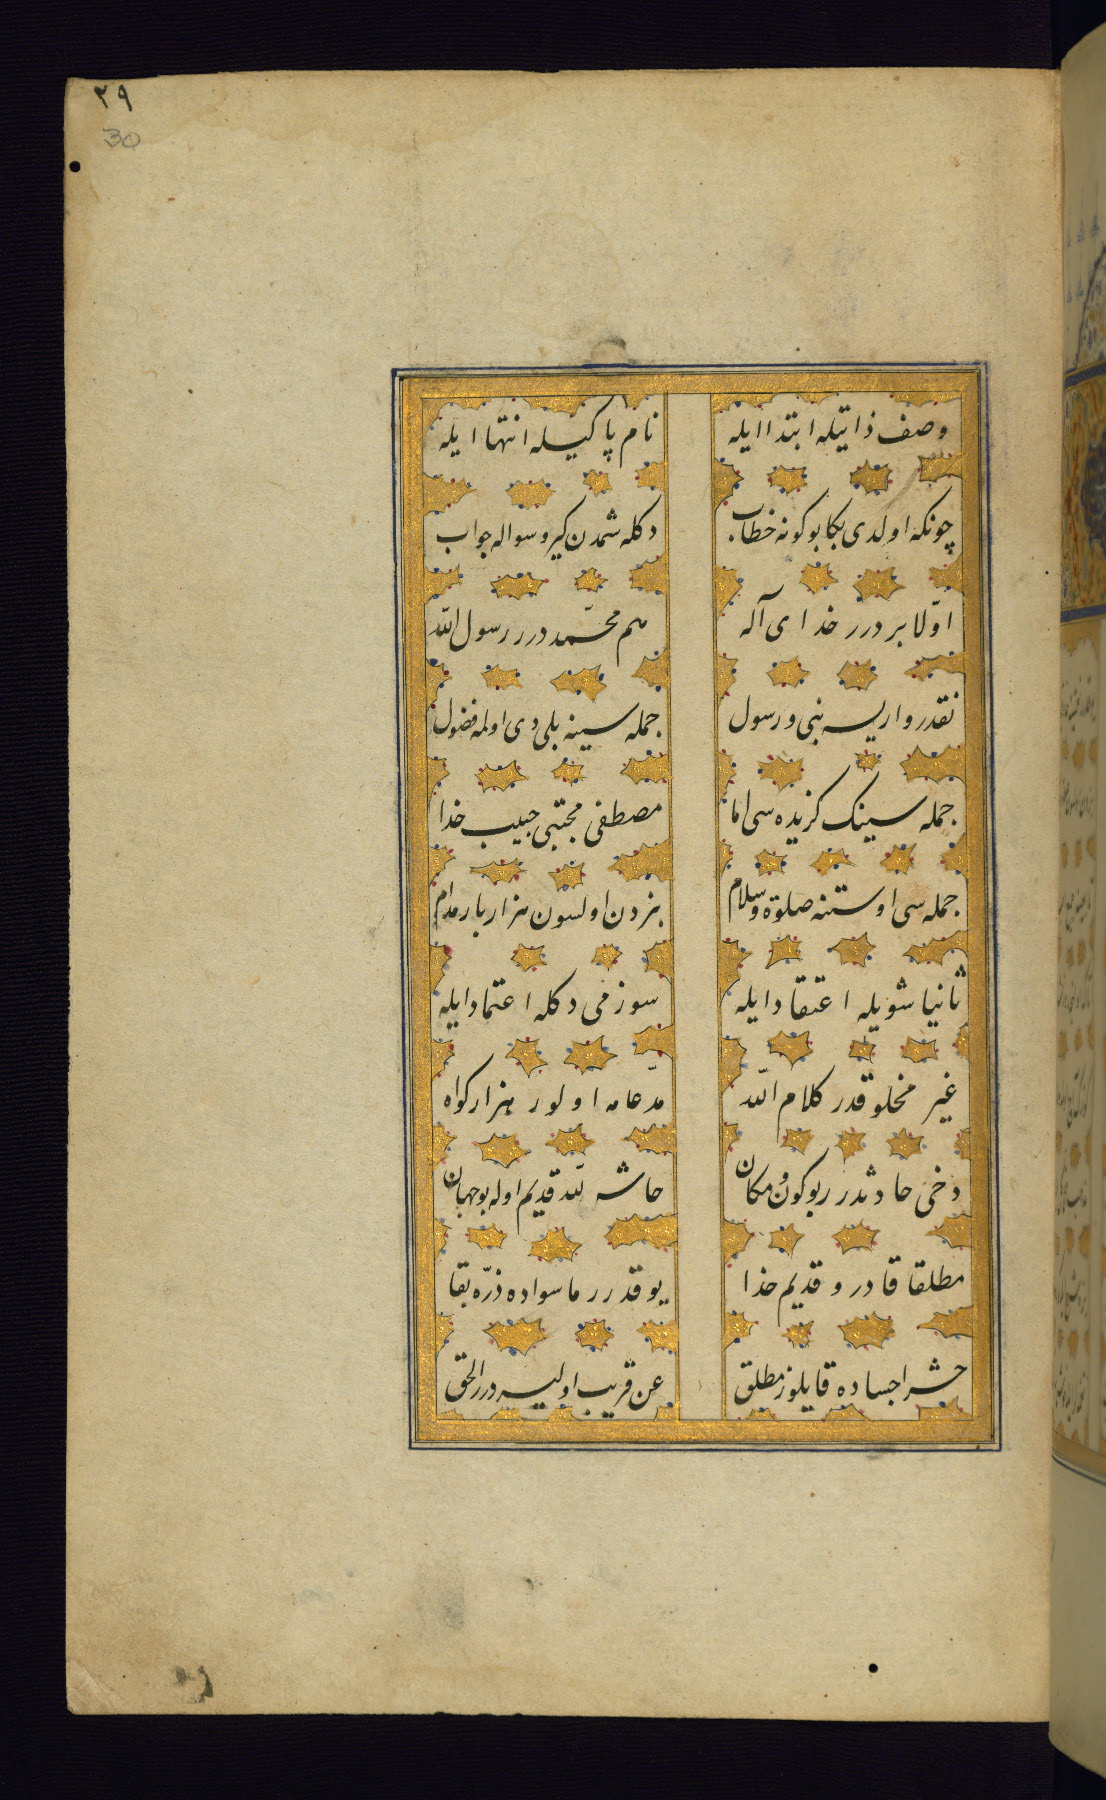 ٢٩
30
وصف ذاتیله ابتدا ایله نام پاکیله انتها ایله
چونکه اولدی بکا بو کونه خطاب دکله شمدن کیرو سواله جواب
اولا بر درر خدای آله هم محمّد درر رسول اللّه
نقدر واریسه نبی و رسول جمله سینه بلی دی اولمه فضول
جمله سینک کزیده سی اما مصطفی مجتبی حبیب خدا
جمله سی اوستنه صلوة و سلام بزدن اولسون هزار بار مدام
ثانیا شویله اعتقاد ایله سوزمی دکله اعتماد ایله
غیر مخلوقدر کلام اللّه مدّعامه اولور هزار کواه
دخی حادثدرر بو کون و مکان حاش للّه قدیم اوله بو جهان
مطلقا قادر و قدیم خدا یوقدرر ماسواده ذرّه بقا
حشر اجساده قایلوز مطلق عن قریب اولیسه درر الحق